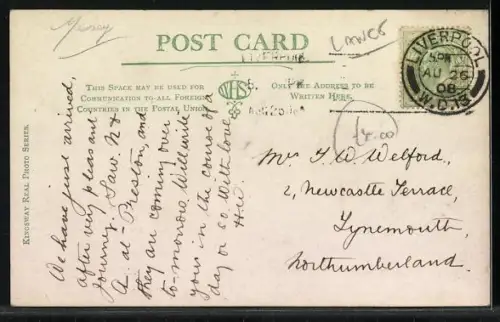 Mersey
POST CARD
LANCS
LIVERPOOL
5 PM
AU 26
08
W.D.13
LIVERPOOL
THIS SPACE MAY BE USED FOR
COMMUNICATION TO ALL FOREIGN
COUNTRIES IN THE POSTAL UNION.
ONLY THE ADDRESS TO BE
WRITTEN HERE.
KINGSWAY REAL PHOTO SERIES.
We have just arrived,
after very pleasant
journey. Saw N &
A at Preston, and
they are coming over
to-morrow. Will write
you in the course of a
day or so. With love
£4.00
Mrs T. W. Welford,
2, Newcastle Terrace,
Tynemouth,
Northumberland.